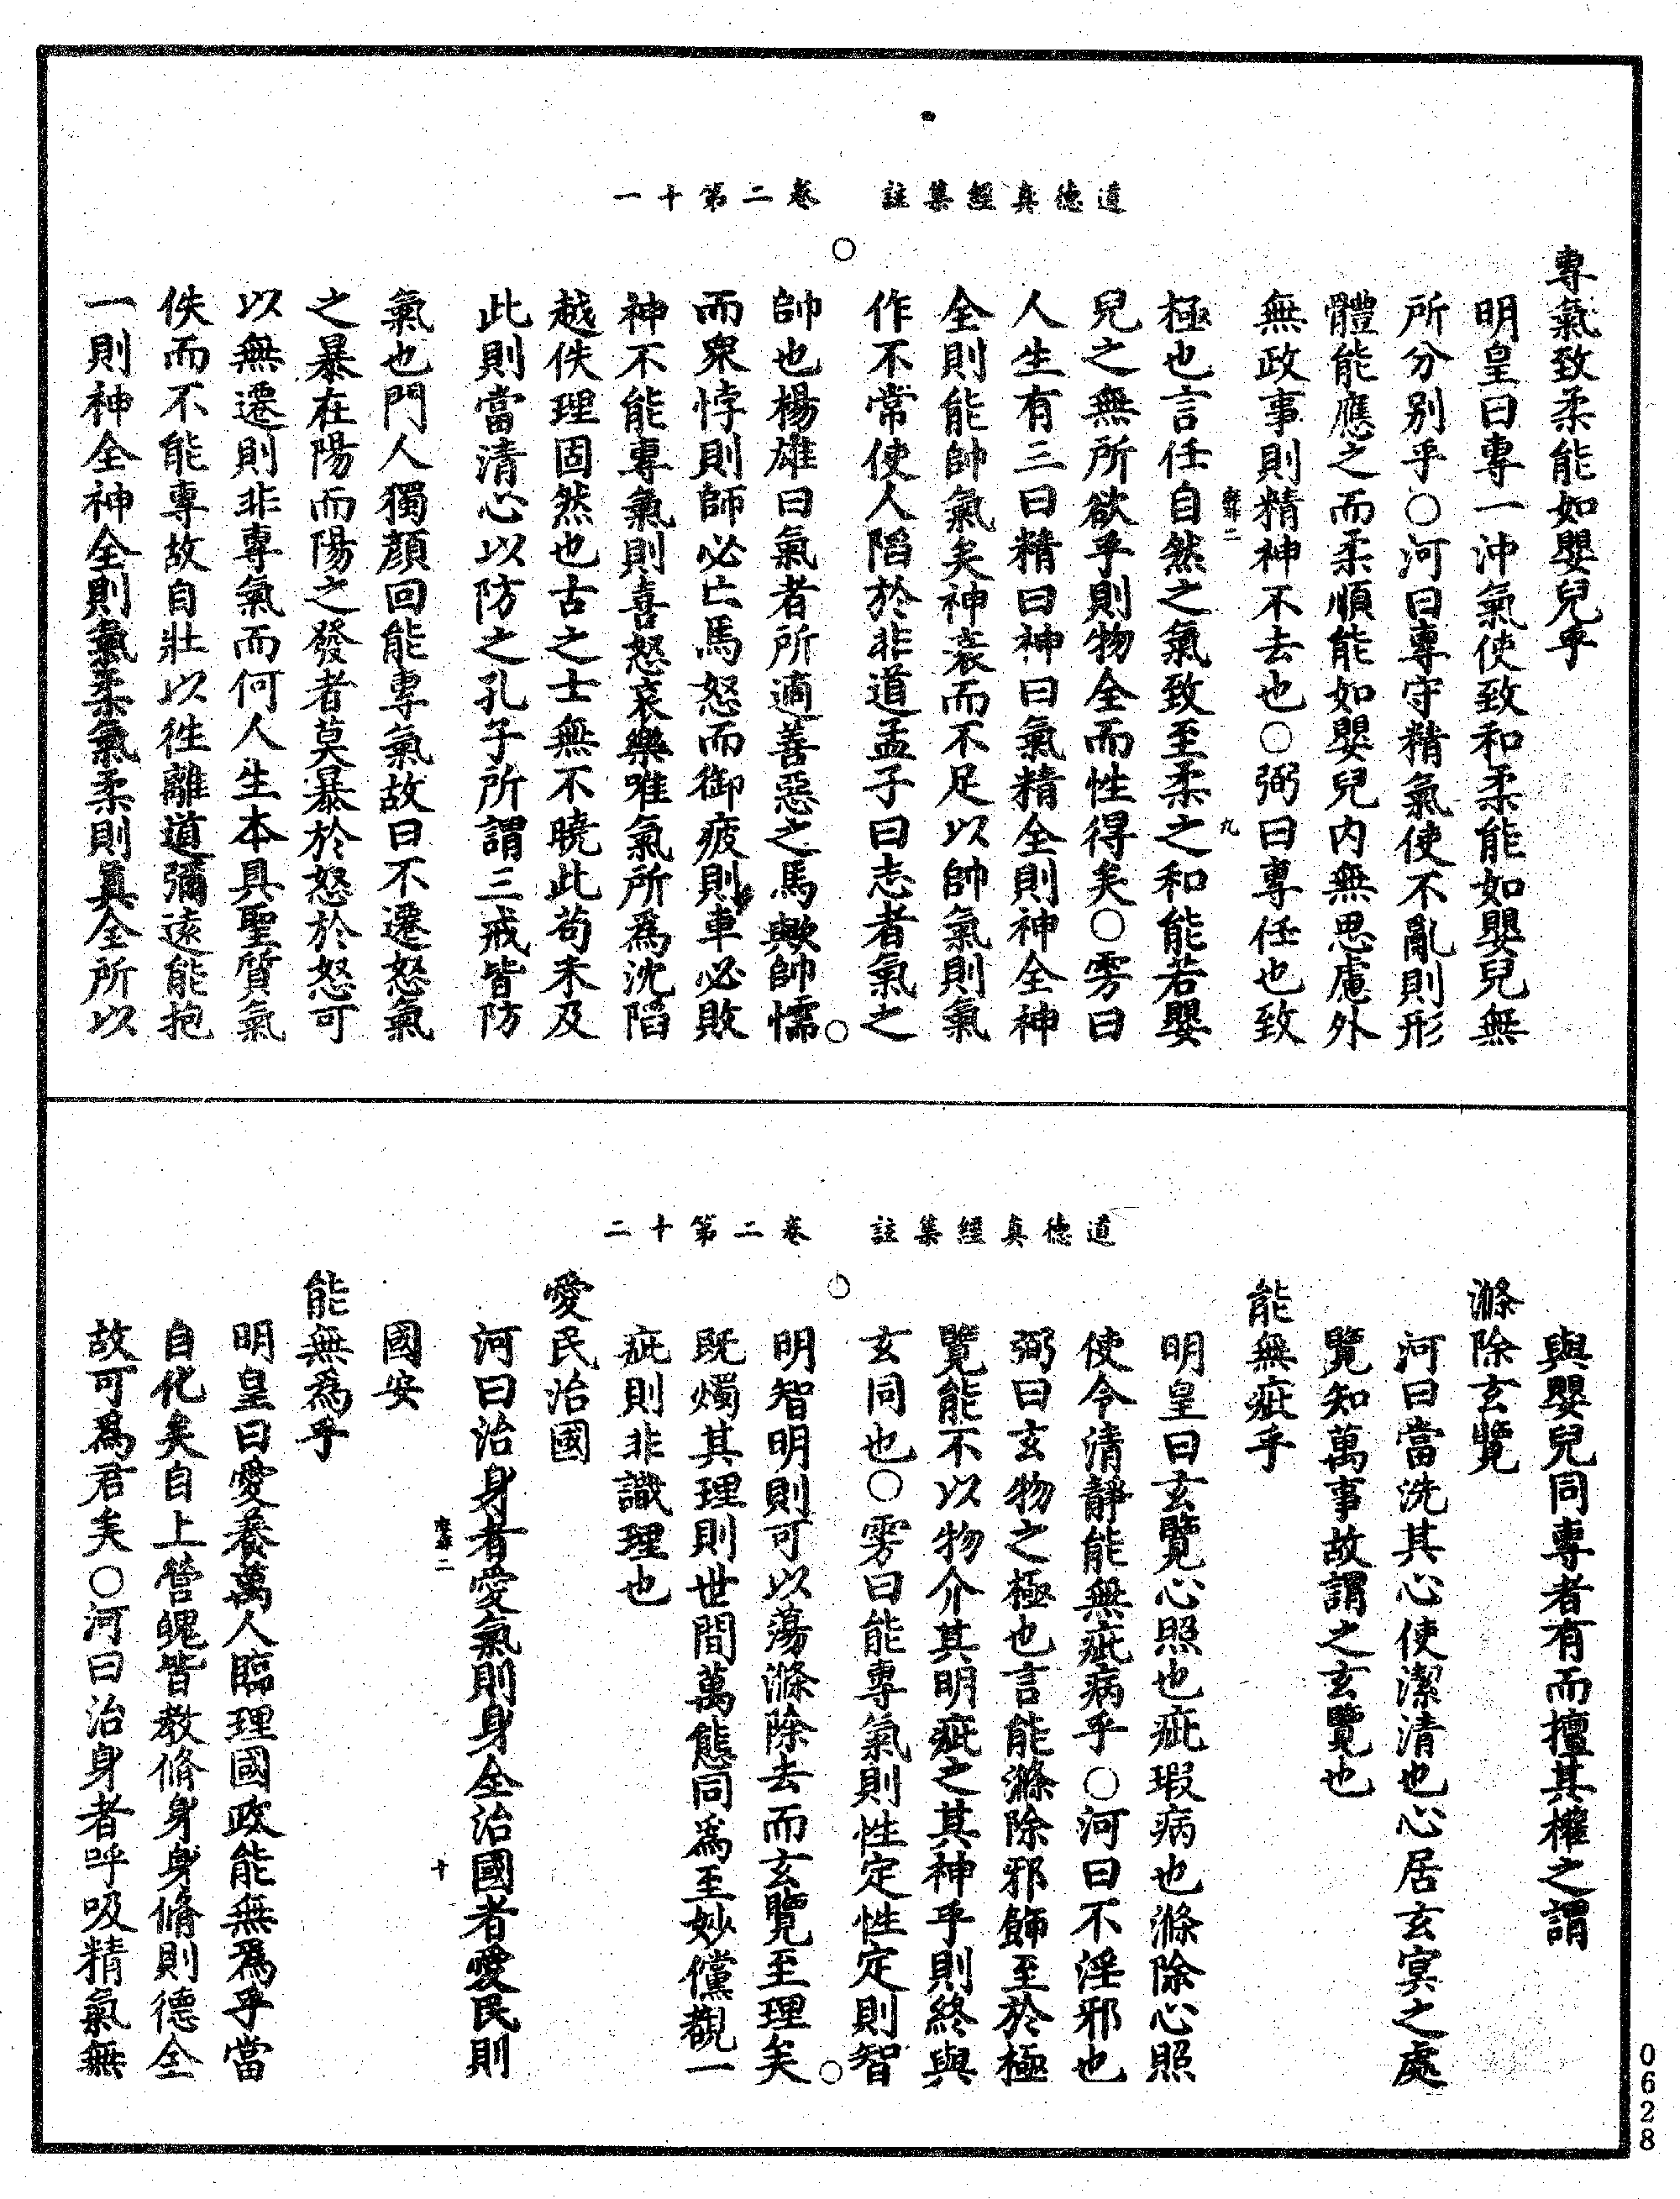 道德真經集註　卷二第十一
專氣致柔能如嬰兒乎
明皇曰專一沖氣使致和柔能如嬰兒無
所分别乎○河曰專守精氣使不亂則形
體能應之而柔順能如嬰兒内無思慮外
無政事則精神不去也○弼曰專任也致
二
九
極也言任自然之氣致至柔之和能若嬰
兒之無所欲乎則物全而性得矣○雱曰
人生有三曰精曰神曰氣精全則神全神
全則能帥氣矣神衰而不足以帥氣則氣
作不常使人陷於非道孟子曰志者氣之
帥也楊雄曰氣者所適善惡之馬歟帥懦
而衆悖則師必亡馬怒而御疲則車必敗
神不能專氣則喜怒哀樂唯氣所爲沈陷
越佚理固然也古之士無不曉此苟未及
此則當清心以防之孔子所謂三戒皆防
氣也門人獨顔回能專氣故曰不遷怒氣
之暴在陽而陽之發者莫暴於怒於怒可
以無遷則非專氣而何人生本具聖質氣
佚而不能專故自壯以徃離道彌遠能抱
一則神全神全則氣柔氣柔則真全所以
道德真經集註　卷二第十二
與嬰兒同專者有而擅其權之謂
滌除玄覽
河曰當洗其心使潔清也心居玄冥之處
覽知萬事故謂之玄覽也
能無疵乎
明皇曰玄覽心照也疵瑕病也滌除心照
使令清靜能無疵病乎○河曰不淫邪也
弼曰玄物之極也言能滌除邪飾至於極
覽能不以物介其明疵之其神乎則終與
玄同也○雱曰能專氣則性定性定則智
明智明則可以蕩滌除去而玄覽至理矣
既燭其理則世間萬態同爲至妙儻觀一
疵則非識理也
愛民治國
河曰治身者愛氣則身全治國者愛民則
二
十
國安
能無為乎
明皇曰愛養萬人臨理國政能無為乎當
自化矣自上營魄皆教脩身身脩則德全
故可爲君矣○河曰治身者呼吸精氣無
0628